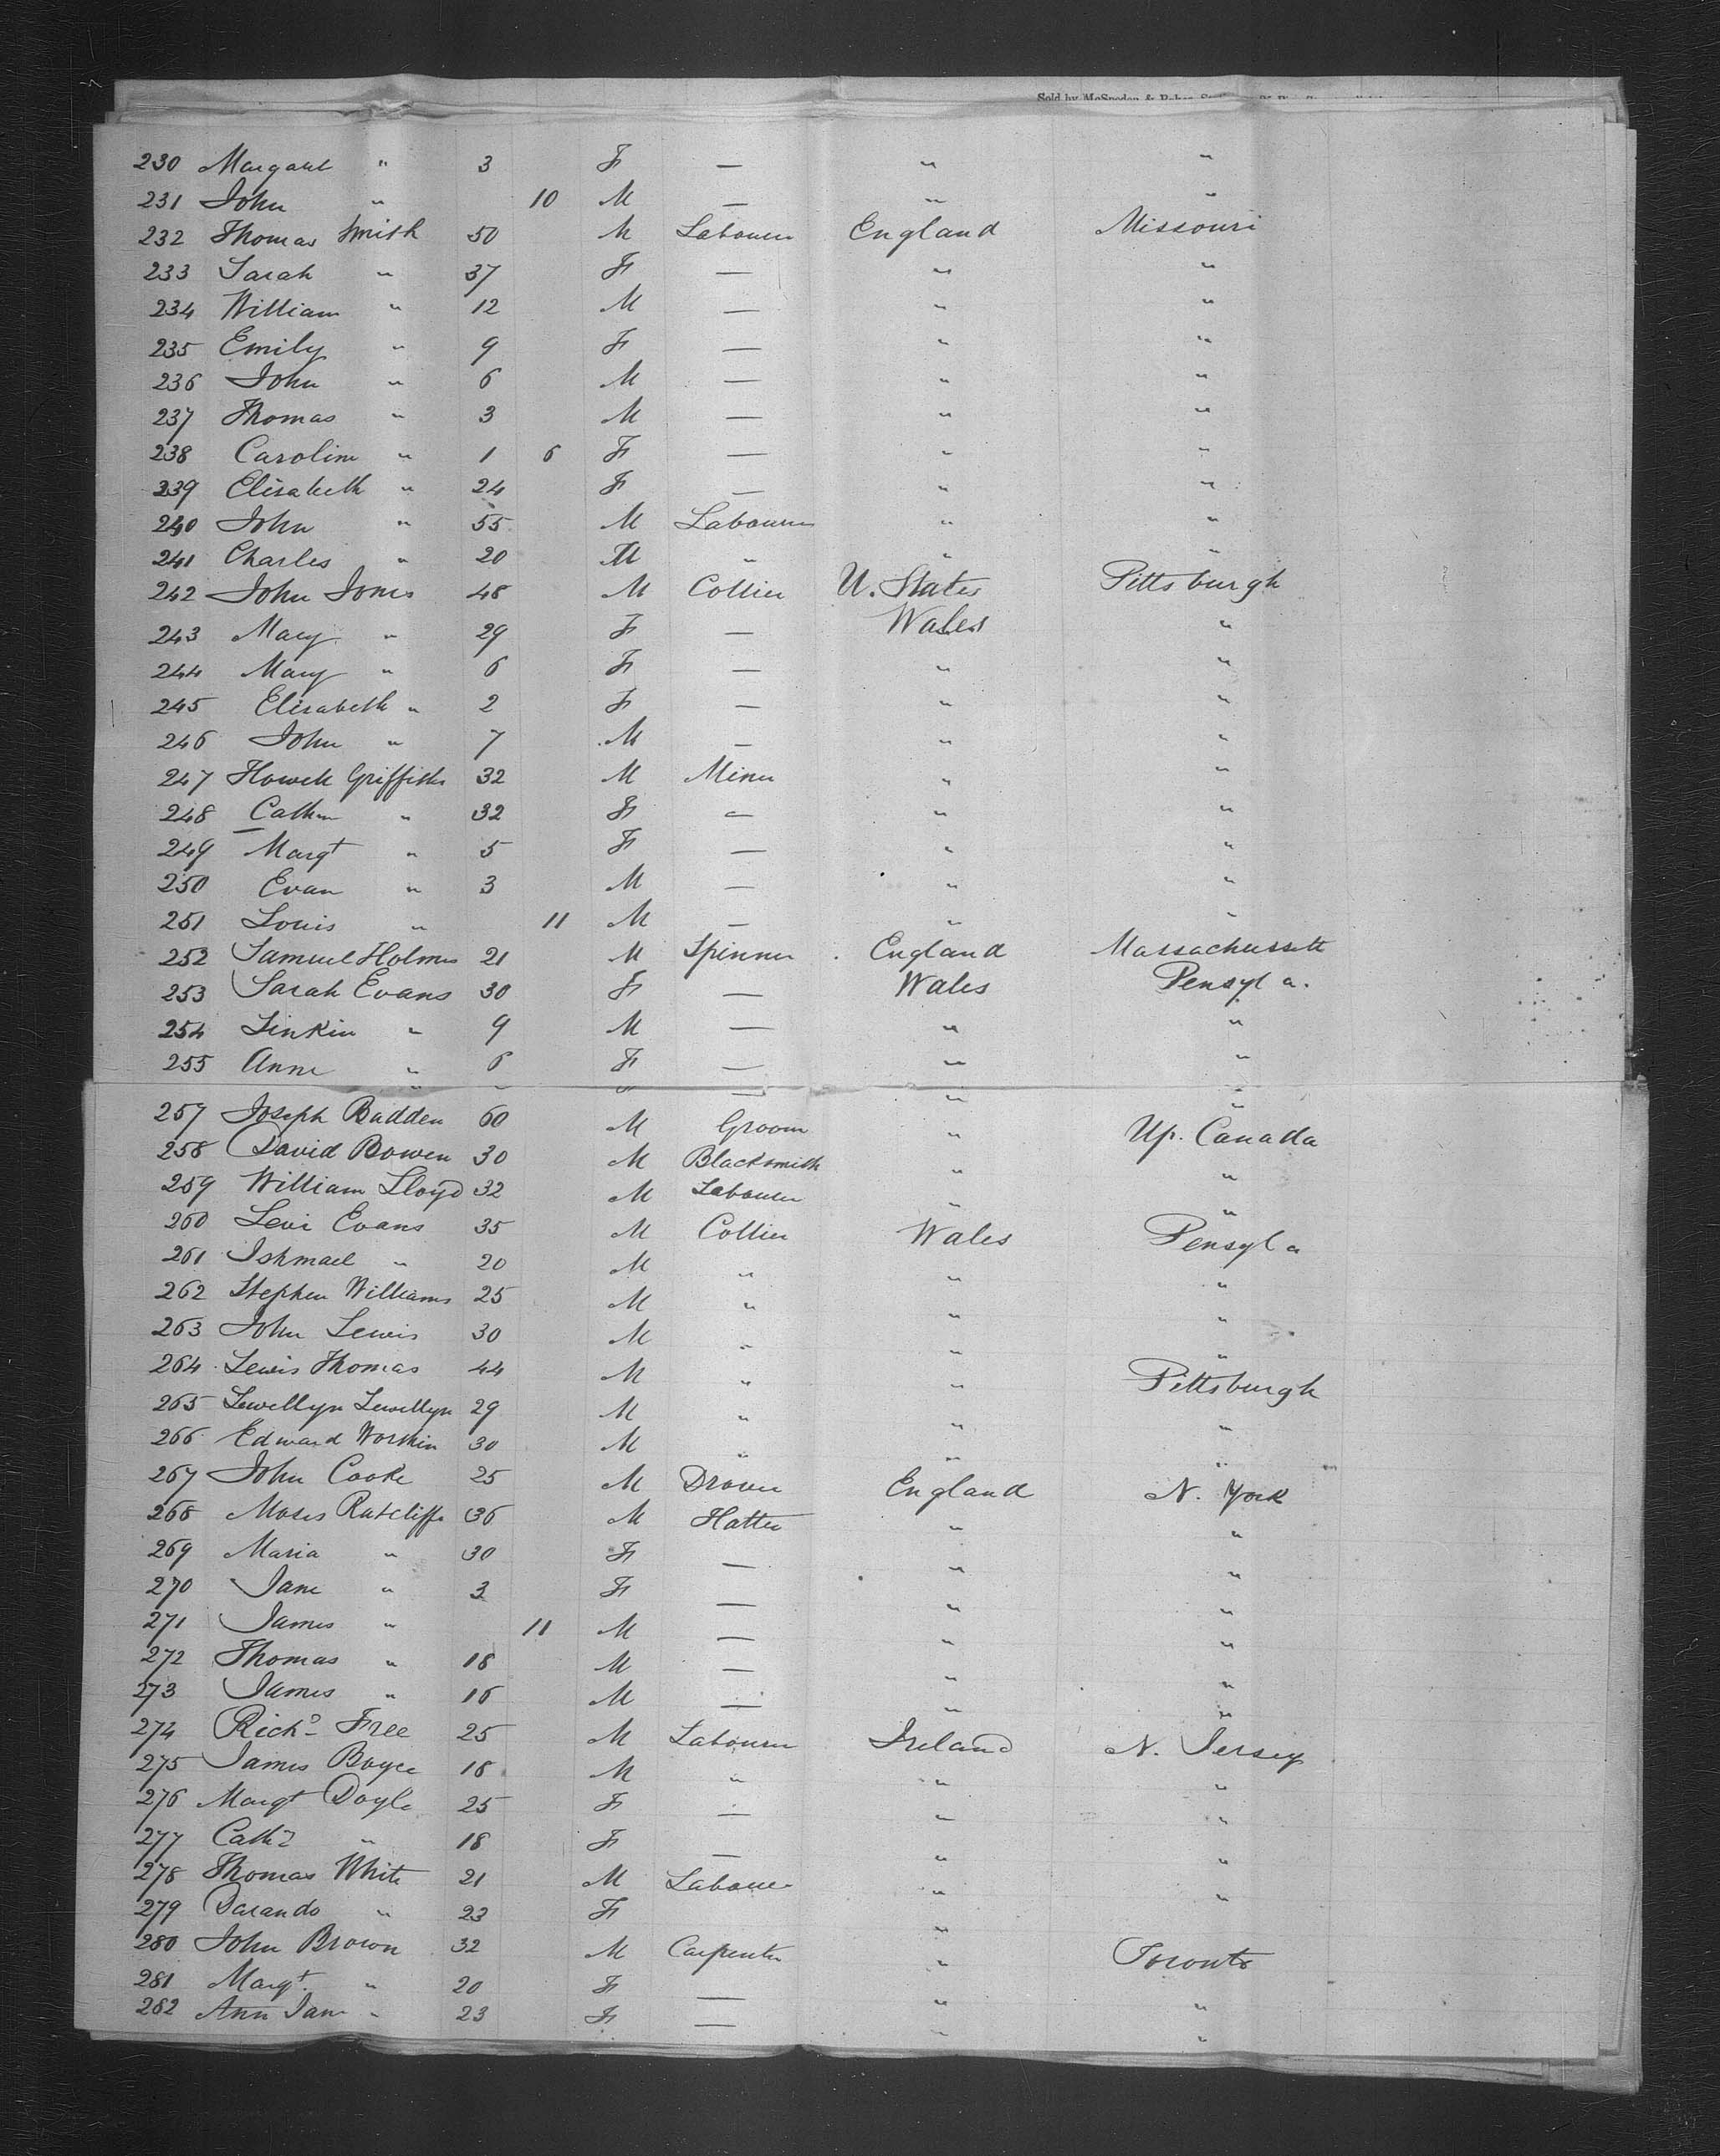 Sold by McSpedon & Baker, Stationers
230 Margaret " 3 F — " "
231 John " 10 M — " "
232 Thomas Smith 50 M Labourer England Missouri
233 Sarah " 37 F — " "
234 William " 12 M — " "
235 Emily " 9 F — " "
236 John " 6 M — " "
237 Thomas " 3 M — " "
238 Caroline " 1 6 F — " "
239 Elisabeth " 24 F — " "
240 John " 55 M Labourer " "
241 Charles " 20 M " " "
242 John Jones 48 M Collier U. States Pittsburgh
243 Mary " 29 F — Wales "
244 Mary " 6 F — " "
245 Elisabeth " 2 F — " "
246 John " 7 M — " "
247 Howell Griffiths 32 M Miner " "
248 Cathn " 32 F — " "
249 Margt " 5 F — " "
250 Evan " 3 M — " "
251 Louis " 11 M — " "
252 Samuel Holmes 21 M Spinner England Massachussett
253 Sarah Evans 30 F — Wales Pensyl a.
254 Jinkin " 9 M — " "
255 Anne " 6 F — " "
257 Joseph Badden 60 M Groom " Up. Canada
258 David Bowen 30 M Blacksmith " "
259 William Lloyd 32 M Labourer " "
260 Levi Evans 35 M Collier Wales Pensyl a
261 Ishmael " 20 M " " "
262 Stephen Williams 25 M " " "
263 John Lewis 30 M " " "
264 Lewis Thomas 44 M " " Pittsburgh
265 Lewellyn Lewellyn 29 M " " "
266 Edward Workin 30 M " " "
267 John Cooke 25 M Drover England N. York
268 Moses Ratcliffe 36 M Hatter " "
269 Maria " 30 F — " "
270 Jane " 3 F — " "
271 James " 11 M — " "
272 Thomas " 18 M — " "
273 James " 16 M — " "
274 Richd Free 25 M Labourer Ireland N. Jersey
275 James Boyce 18 M " " "
276 Margt Doyle 25 F — " "
277 Cathe " 18 F — " "
278 Thomas White 21 M Labourer " "
279 Darando " 23 F "
280 John Brown 32 M Carpenter " Toronto
281 Margt. " 20 F — " "
282 Ann Jane " 23 F — " "